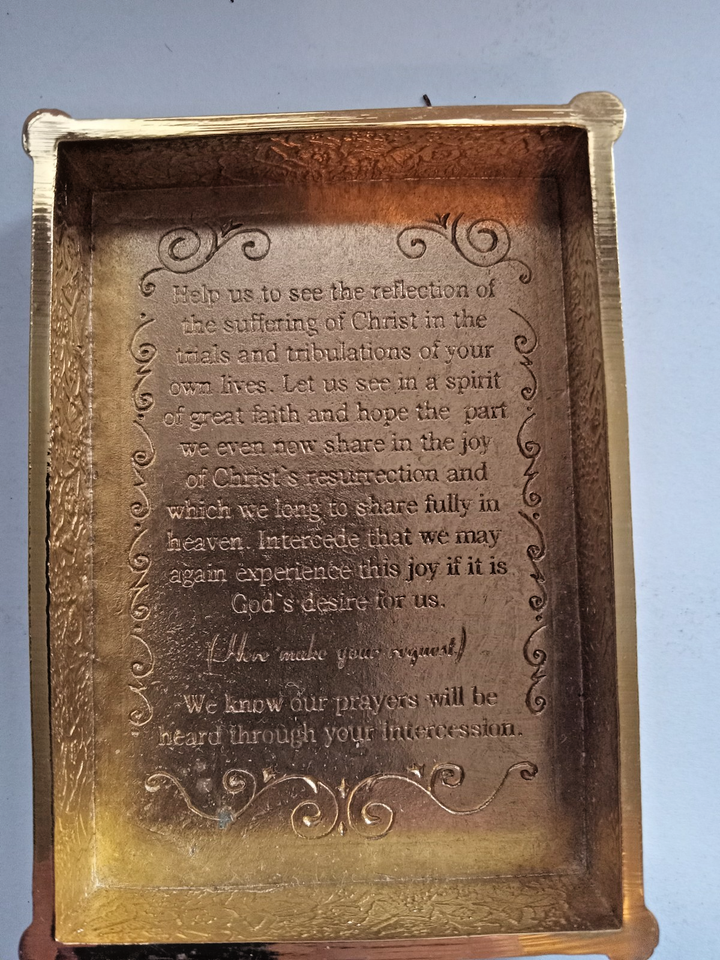 Help us to see the reflection of
the suffering of Christ in the
trials and tribulations of your
own lives. Let us see in a spirit
of great faith and hope the part
we even now share in the joy
of Christ`s resurrection and
which we long to share fully in
heaven. Intercede that we may
again experience this joy if it is
God`s desire for us.
(Here make your request)
We know our prayers will be
heard through your intercession.